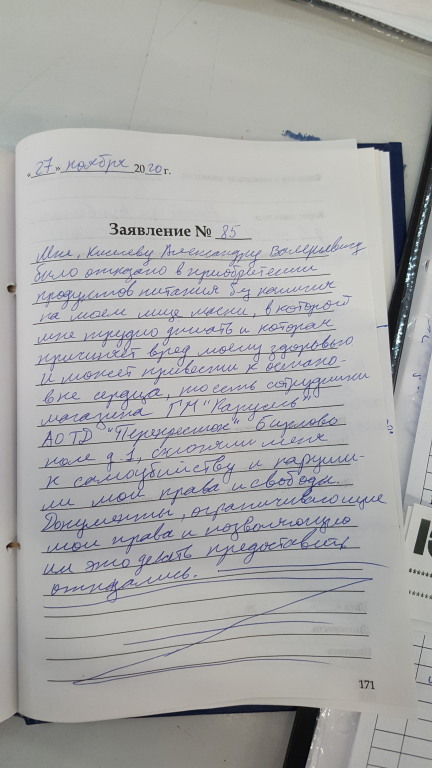 «27» ноября 2020 г.
Заявление № 85
Мне, Киселеву Александру Валерьевичу
было отказано в приобретении
продуктов питания без наличия
на моем лице маски, в которой
мне трудно дышать и которая
причиняет вред моему здоровью
и может привести к останов-
вке сердца, то есть сотрудники
магазина ГМ "Карусель"
АО ТД "Перекресток"
поле д 1, склоняли меня
к самоубийству и наруши-
ли мои права и свободы.
Документы, ограничивающие
мои права и позволяющие
им это делать предоставить
отказались.
171